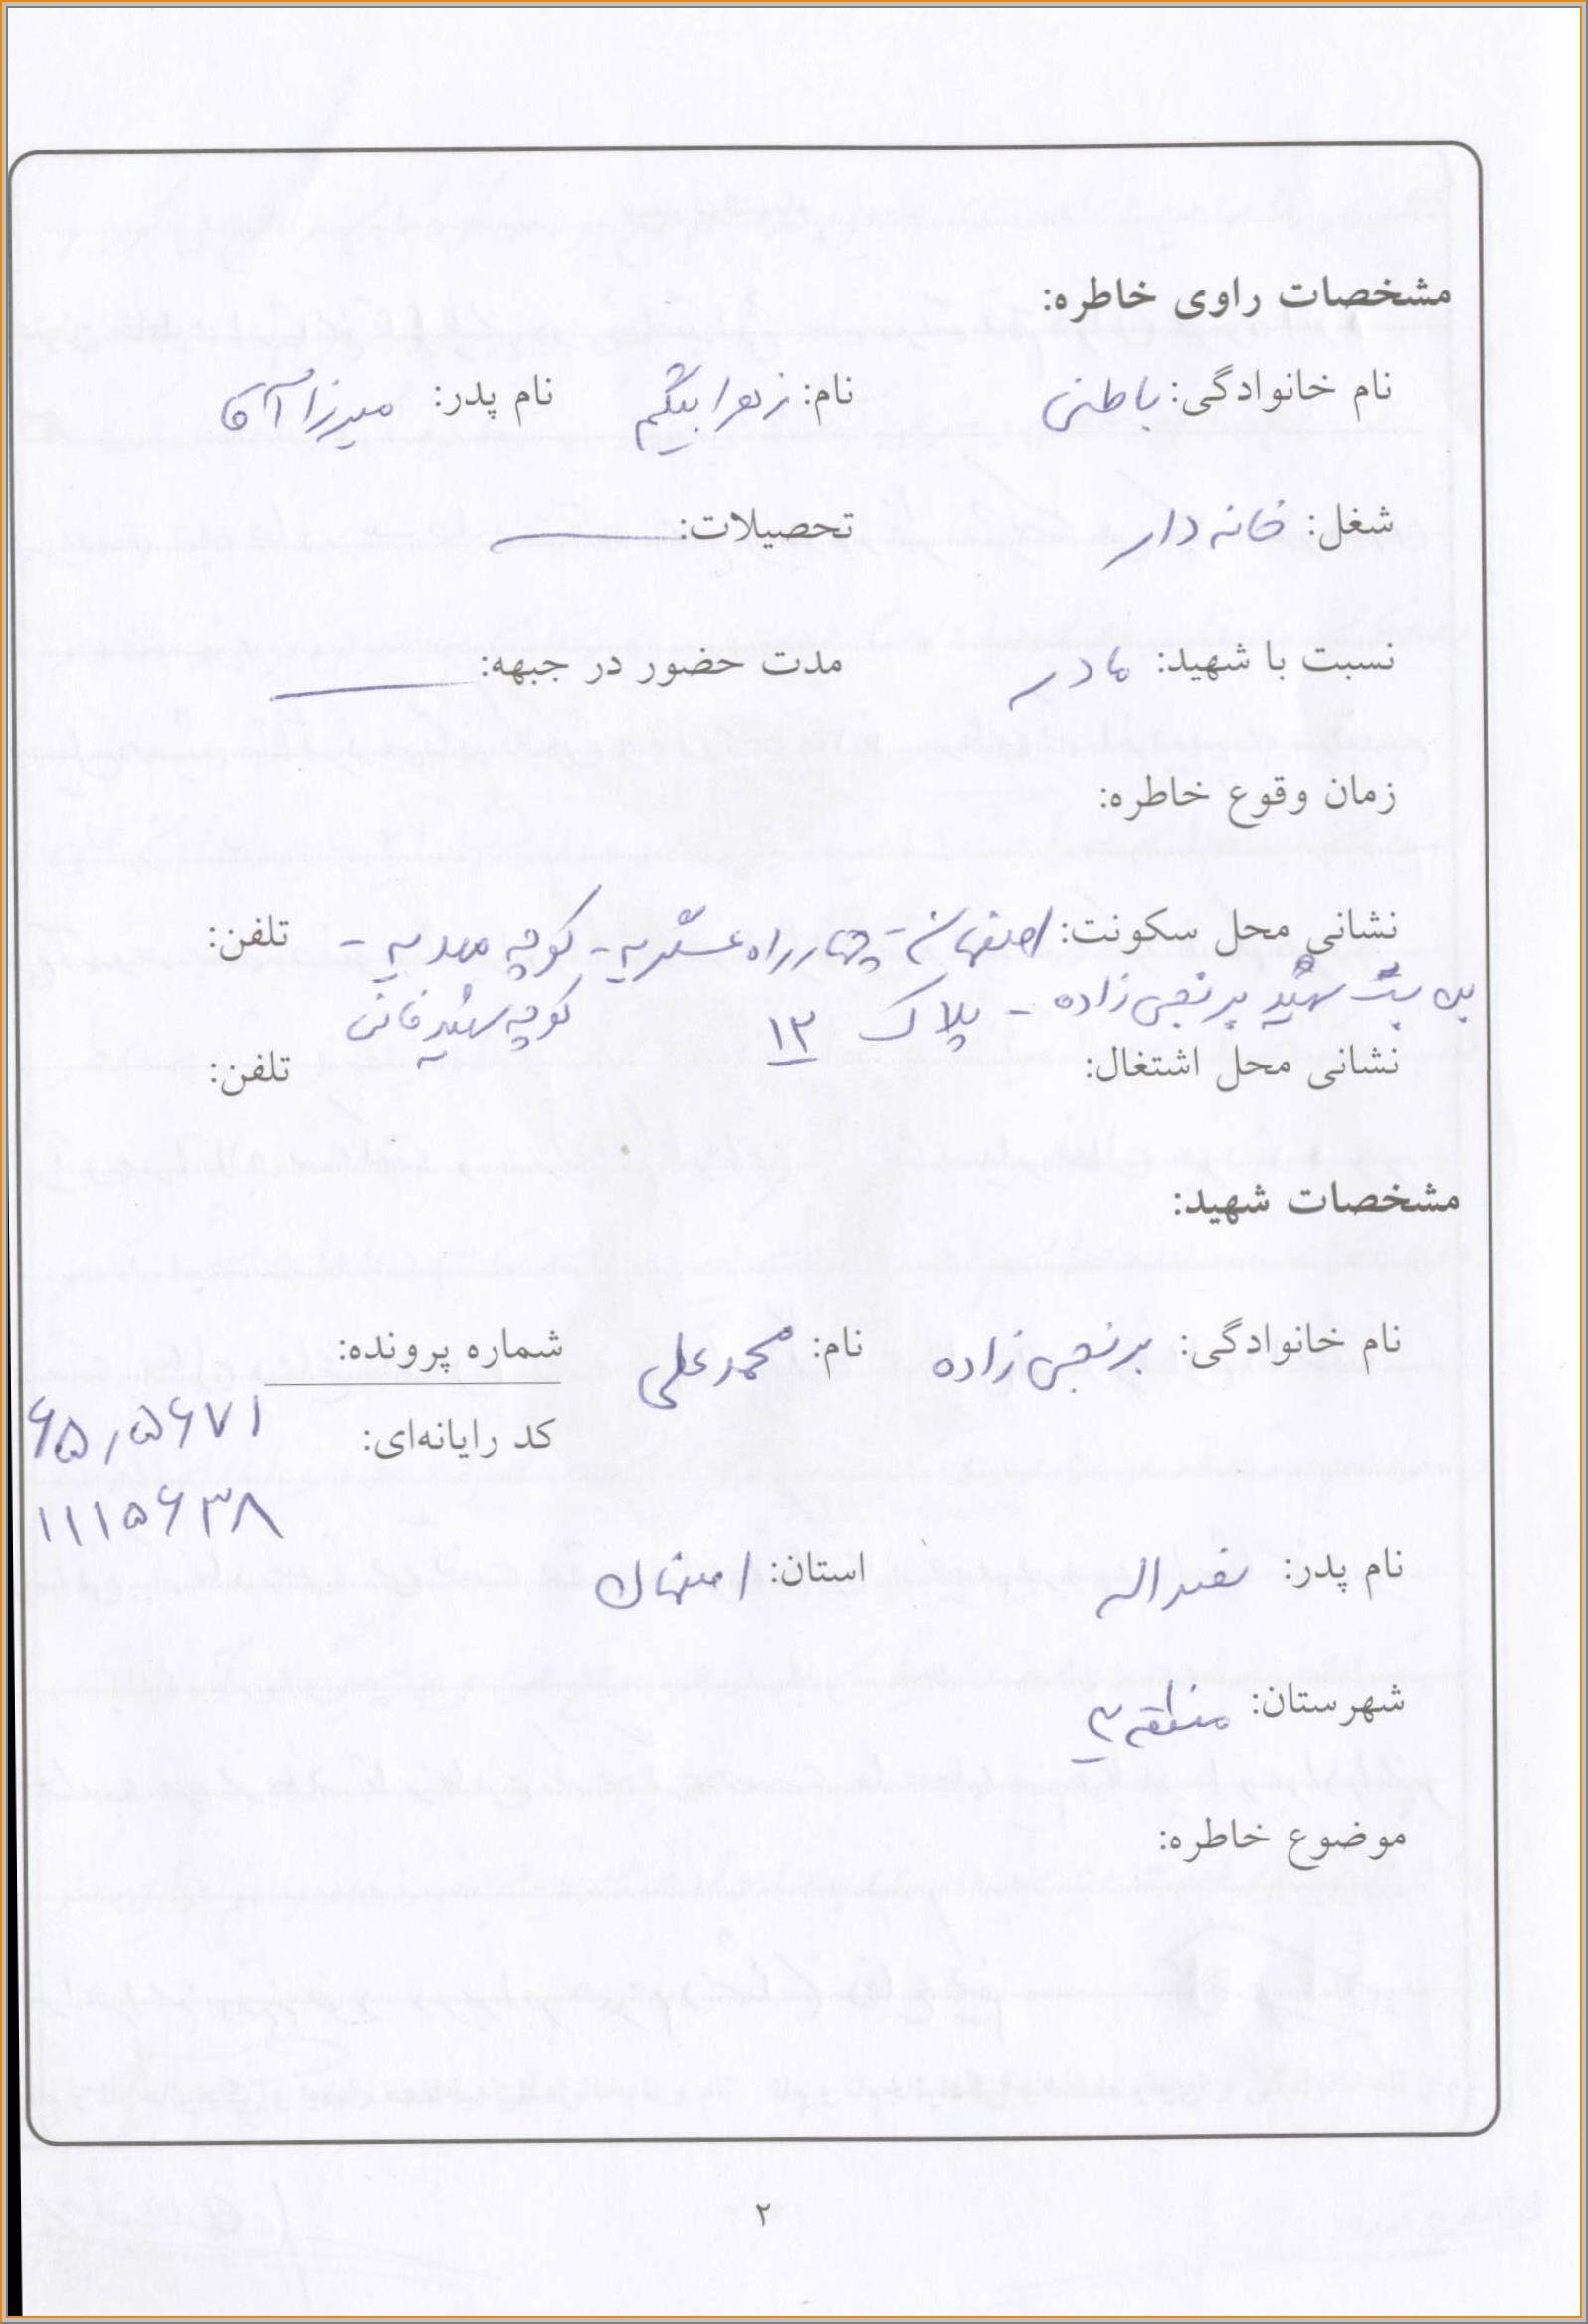 مشخصات راوی خاطره:
نام خانوادگی: باطنی نام: زهرا بیگم نام پدر: میرزا آقا
شغل: خانه دار تحصیلات: ــــ
نسبت با شهید: مادر مدت حضور در جبهه: ــــ
زمان وقوع خاطره:
نشانی محل سکونت: اصفهان - چهارراه عسگریه - کوچه مهدیه - تلفن:
بن بست شهید برنجی زاده - پلاک ۱۳ کوچه شهید
نشانی محل اشتغال: تلفن:
مشخصات شهید:
نام خانوادگی: برنجی زاده نام: محمدعلی شماره پرونده:
کد رایانه‌ای: ۶۵,۵۶۷۱
۱۱۱۵۶۳۸
نام پدر: نصراله استان: اصفهان
شهرستان: منطقه ۳
موضوع خاطره:
۲